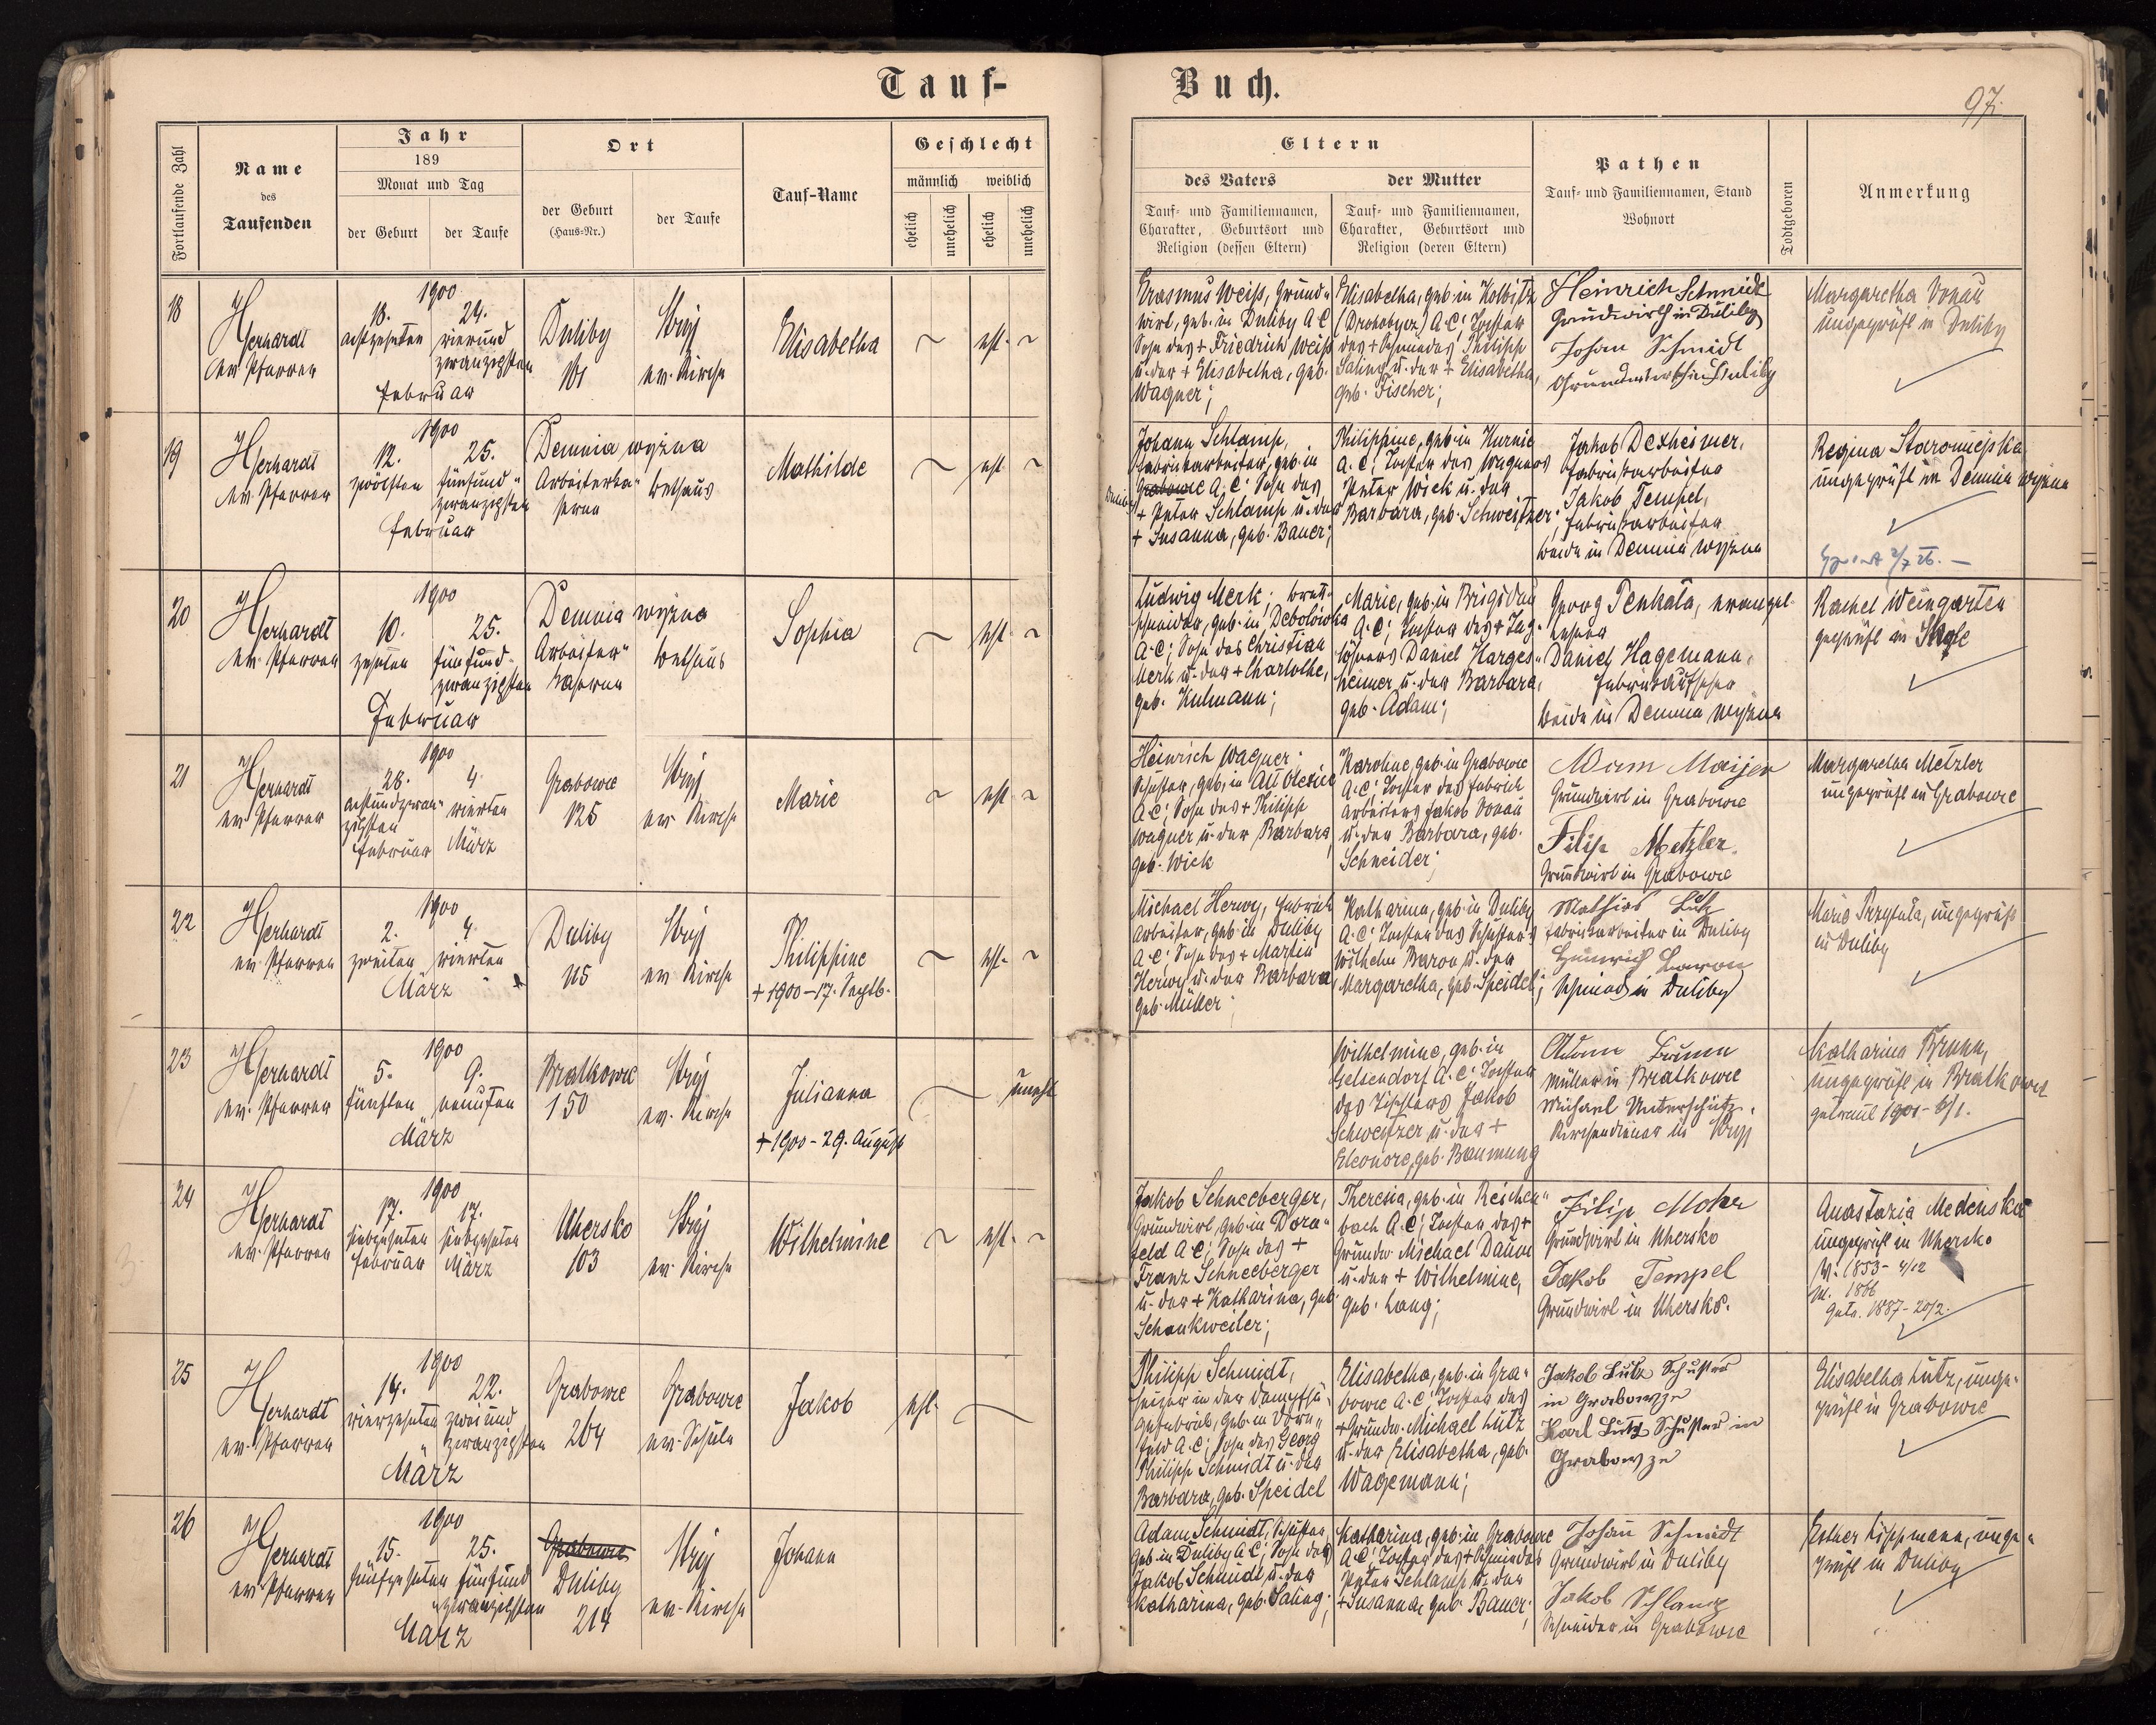 Tauf-Buch.
97.
Fortlaufende Zahl
Name
des
Taufenden
Jahr
189
Monat und Tag
der Geburt
der Taufe
Ort
der Geburt
(Haus-Nr.)
der Taufe
Tauf-Name
Geschlecht
männlich
weiblich
ehelich
unehelich
ehelich
unehelich
Eltern
des Vaters
der Mutter
Tauf- und Familiennamen,
Charakter, Geburtsort und
Religion (dessen Eltern)
Tauf- und Familiennamen,
Charakter, Geburtsort und
Religion (deren Eltern)
Pathen
Tauf- und Familiennamen, Stand
Wohnort
Todtgeboren
Anmerkung
18
Herhardt
ev. Pfarrer
1900
18.
achtzehnten
24.
vierund
zwanzigsten
Februar
Duliby
101
Stryj
ev. Kirche
Elisabetha
~ ehl. ~
Erasmus Weiss, Grund-
wirt, geb. in Duliby A C
Sohn des + Friedrich Weiss
u. der + Elisabetha, geb.
Wagner;
Elisabetha, geb. in Kolbitz
(Drohobycz) A. C; Tochter
des + Schmiedes Philipp
Saling u. der + Elisabetha,
geb. Fischer;
Heinrich Schmidt
Grundwirth in Duliby
Johan Schmidt
Grundwirth in Duliby
Margaretha Donau
ungeprüft in Duliby
19
Herhardt
ev. Pfarrer
1900
12.
zwölften
25.
fünfund"
zwanzigsten
Februar
Demnia wyżna
Arbeiterka"
serne
Bethaus
Mathilde
~ ehl. ~
Johann Schlamp,
Fabriksarbeiter, geb. in
Grabowce A. C; Sohn des
+ Peter Schlamp u. der
+ Susanna, geb. Bauer;
Philippine, geb. in Hurnie
A. C; Tochter des Wagners
Peter Wick u. der
Barbara, geb. Schweitzer;
Jakob Dexheimer,
Fabriksarbeiter
Jakob Tempel,
Fabriksarbeiter
beide in Demnia wyżna
Regina Staromiejska
ungeprüft in Demnia wyżna
20
Herhardt
ev. Pfarrer
1900
10.
zehnten
25.
fünfund-
zwanzigsten
Februar
Demnia wyżna
Arbeiter"
kaserne
Bethaus
Sophia
~ ehl. ~
Ludwig Merk; Brett-
schneider, geb. in Debolówka
A. C; Sohn des Christian
Merk u. der + Charlothe,
geb. Kulmann;
Marie, geb. in Brigidau
A. C; Tochter des + Tag-
löhners Daniel Harges"
heimer u. der Barbara,
geb. Adam;
Georg Penkala, evangel.
Lehrer
Daniel Hagemann,
Fabriksaufseher
beide in Demnia wyżna
Rachel Weingarten
geprüft in Skole
21
Herhardt
ev. Pfarrer
1900
28.
achtundzwan-
zigsten
Februar
4.
vierten
März
Grabowce
125
Stryj
ev. Kirche
Marie
~ ehl. ~
Heinrich Wagner,
Schuster, geb. in Alt Oleksice
A. C; Sohn des + Philipp
Wagner u. der Barbara,
geb. Wick
Karoline, geb. in Grabowce
A. C; Tochter des Fabriks
arbeiters Jakob Donau
u. der Barbara, geb.
Schneider;
Adam Maijer
Grundwirt in Grabowce
Filip Metzler
Grundwirt in Grabowce
Margaretha Metzler
ungeprüft in Grabowce
22
Herhardt
ev. Pfarrer
1900
2.
zweiten
4.
vierten
März
Duliby
115
Stryj
ev. Kirche
Philippine
+ 1900 – 17. Septb.
~ ehl. ~
Michael Herwy, Fabriks
arbeiter, geb. in Duliby
A. C; Sohn des + Martin
Herwy u. der Barbara
geb. Müller;
Katharina, geb. in Duliby
A. C; Tochter des Schusters
Wilhelm Baron u. der
Margaretha, geb. Speidel;
Mathias Lutz
Fabriksarbeiter in Duliby
Heinrich Baron
Schmied in Duliby
Marie Przytuła, ungeprüft
in Duliby
23
Herhardt
ev. Pfarrer
1900
5.
fünften
9.
neunten
März
Bratkowce
150
Stryj
ev. Kirche
Julianna
+ 1900 – 29. August
~ unehl.
Wilhelmine, geb. in
Gelsendorf A. C; Tochter
des Tischlers Jakob
Schweitzer u. der +
Eleonore, geb. Baumung
Adam Brunn
Müller in Bratkowce
Michael Unterschütz,
Kirchendiener in Stryj
Katharina Brunn,
ungeprüft in Bratkowce
getraut 1901 – 6/1.
24
Herhardt
ev. Pfarrer
1900
17.
siebzehnten
Februar
17.
siebzehnten
März
Uhersko
103
Stryj
ev. Kirche
Wilhelmine
~ ehl. ~
Jakob Schneeberger,
Grundwirt, geb. in Dorn"
feld A C; Sohn des +
Franz Schneeberger
u. der + Katharina, geb.
Schankweiler;
Theresia, geb. in Reichen"
bach A. C; Tochter des +
Grundw. Michael Daum
u. der + Wilhelmine,
geb. Lang;
Filip Moker
Grundwirt in Uhersko
Jakob Tempel
Grundwirt in Uhersko.
Anastazia Medeńska
ungeprüft in Uhersko
V. 1853 – 4/12
M. 1866
getr. 1887 – 20/2.
25
Herhardt
ev. Pfarrer
1900
14.
vierzehnten
22.
zweiund
zwanzigsten
März
Grabowce
204
Grabowce
ev. Schule
Jakob
ehl. ~
Philipp Schmidt,
Heizer in der Dampfsä-
gefabrik, geb. in Dorn"
feld A. C; Sohn des Georg
Philipp Schmidt u. der
Barbara, geb. Speidel
Elisabetha, geb. in Gra"
bowce A. C; Tochter des
+ Grundw. Michael Lutz
u. der Elisabetha, geb.
Wagemann;
Jakob Lutz Schuster
in Grabowze
Karl Lutz Schuster in
Grabowze
Elisabetha Lutz, unge-
prüft in Grabowce
26
Herhardt
ev. Pfarrer
1900
15.
fünfzehnten
25.
fünfund
zwanzigsten
März
Grabowce
Duliby
214
Stryj
ev. Kirche
Johann
Adam Schmidt, Schuster,
geb. in Duliby A C; Sohn des
Jakob Schmidt u. der
Katharina, geb. Saling;
Katharina, geb. in Grabowce
A. C; Tochter des + Schmiedes
Peter Schlamp u. der
+ Susanna, geb. Bauer;
Johan Schmidt
Grundwirt in Duliby
Jakob Schlamp
Schneider in Grabowce
Esther Lippmann, unge"
prüft in Duliby